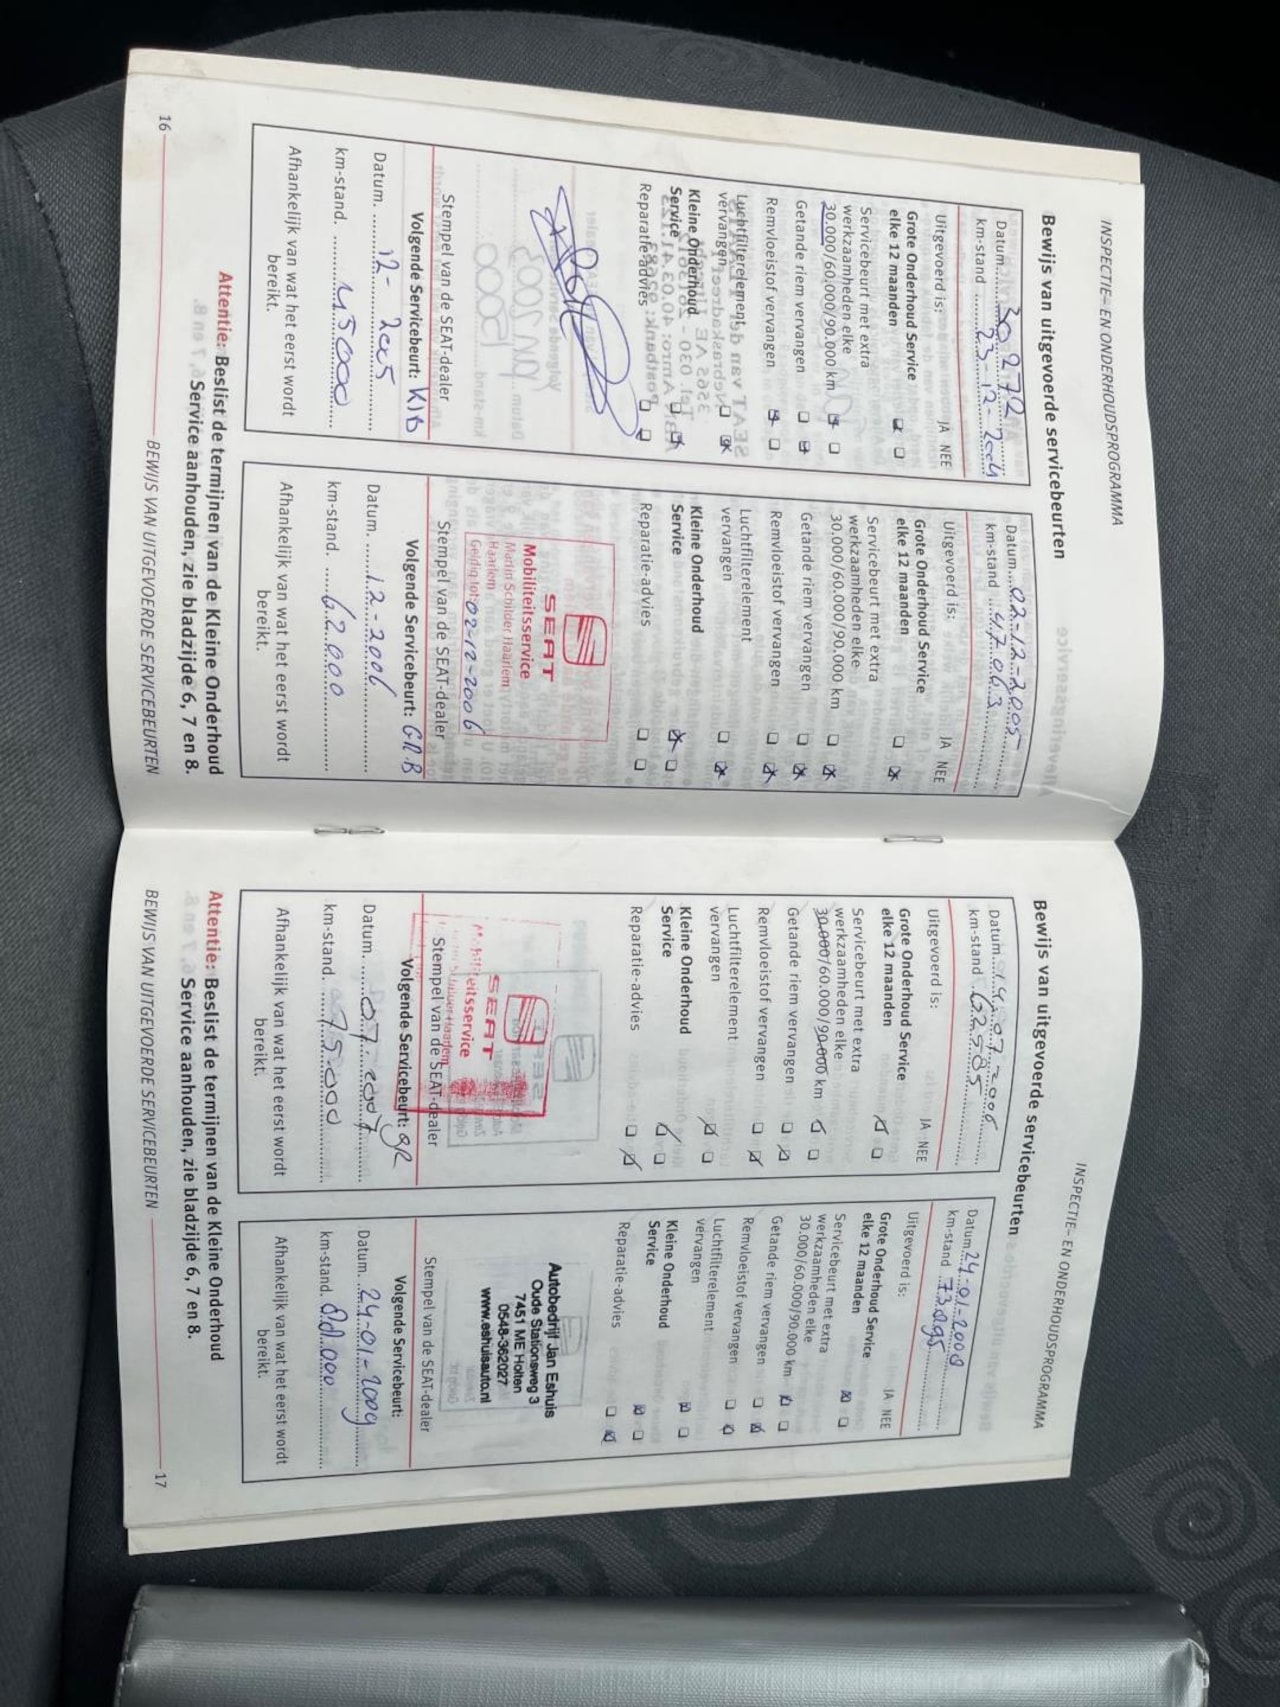 INSPECTIE– EN ONDERHOUDSPROGRAMMA
Bewijs van uitgevoerde servicebeurten
Datum 30272
km-stand 23-12-2004
Uitgevoerd is: JA NEE
Grote Onderhoud Service
elke 12 maanden
Servicebeurt met extra
werkzaamheden elke
30.000/60.000/90.000 km
Getande riem vervangen
Remvloeistof vervangen
Luchtfilterelement
vervangen
Kleine Onderhoud
Service
Reparatie-advies
Stempel van de SEAT-dealer
Volgende Servicebeurt: KlB
Datum. 12- 2005
km-stand. 45000
Afhankelijk van wat het eerst wordt
bereikt.
Datum 02-12-2005
km-stand 47063
Uitgevoerd is: JA NEE
Grote Onderhoud Service
elke 12 maanden
Servicebeurt met extra
werkzaamheden elke
30.000/60.000/90.000 km
Getande riem vervangen
Remvloeistof vervangen
Luchtfilterelement
vervangen
Kleine Onderhoud
Service
Reparatie-advies
SEAT
Mobiliteitsservice
Martin Schilder Haarlem
Haarlem
Geldig tot: 02-12-2006
Stempel van de SEAT-dealer
Volgende Servicebeurt: GR.B
Datum. 12-2006
km-stand. 62000
Afhankelijk van wat het eerst wordt
bereikt.
Attentie: Beslist de termijnen van de Kleine Onderhoud
Service aanhouden, zie bladzijde 6, 7 en 8.
16
BEWIJS VAN UITGEVOERDE SERVICEBEURTEN
INSPECTIE– EN ONDERHOUDSPROGRAMMA
Bewijs van uitgevoerde servicebeurten
Datum 14-07-2006
km-stand 62585
Uitgevoerd is: JA NEE
Grote Onderhoud Service
elke 12 maanden
Servicebeurt met extra
werkzaamheden elke
30.000/60.000/90.000 km
Getande riem vervangen
Remvloeistof vervangen
Luchtfilterelement
vervangen
Kleine Onderhoud
Service
Reparatie-advies
SEAT
Mobiliteitsservice
Stempel van de SEAT-dealer
Volgende Servicebeurt: GR
Datum. 07-2007
km-stand. 75000
Afhankelijk van wat het eerst wordt
bereikt.
Datum 24-01-2008
km-stand 73095
Uitgevoerd is: JA NEE
Grote Onderhoud Service
elke 12 maanden
Servicebeurt met extra
werkzaamheden elke
30.000/60.000/90.000 km
Getande riem vervangen
Remvloeistof vervangen
Luchtfilterelement
vervangen
Kleine Onderhoud
Service
Reparatie-advies
Autobedrijf Jan Eshuis
Oude Stationsweg 3
7451 ME Holten
0548-362027
www.eshuisauto.nl
Stempel van de SEAT-dealer
Volgende Servicebeurt:
Datum. 24-01-2009
km-stand. 88.000
Afhankelijk van wat het eerst wordt
bereikt.
Attentie: Beslist de termijnen van de Kleine Onderhoud
Service aanhouden, zie bladzijde 6, 7 en 8.
BEWIJS VAN UITGEVOERDE SERVICEBEURTEN
17